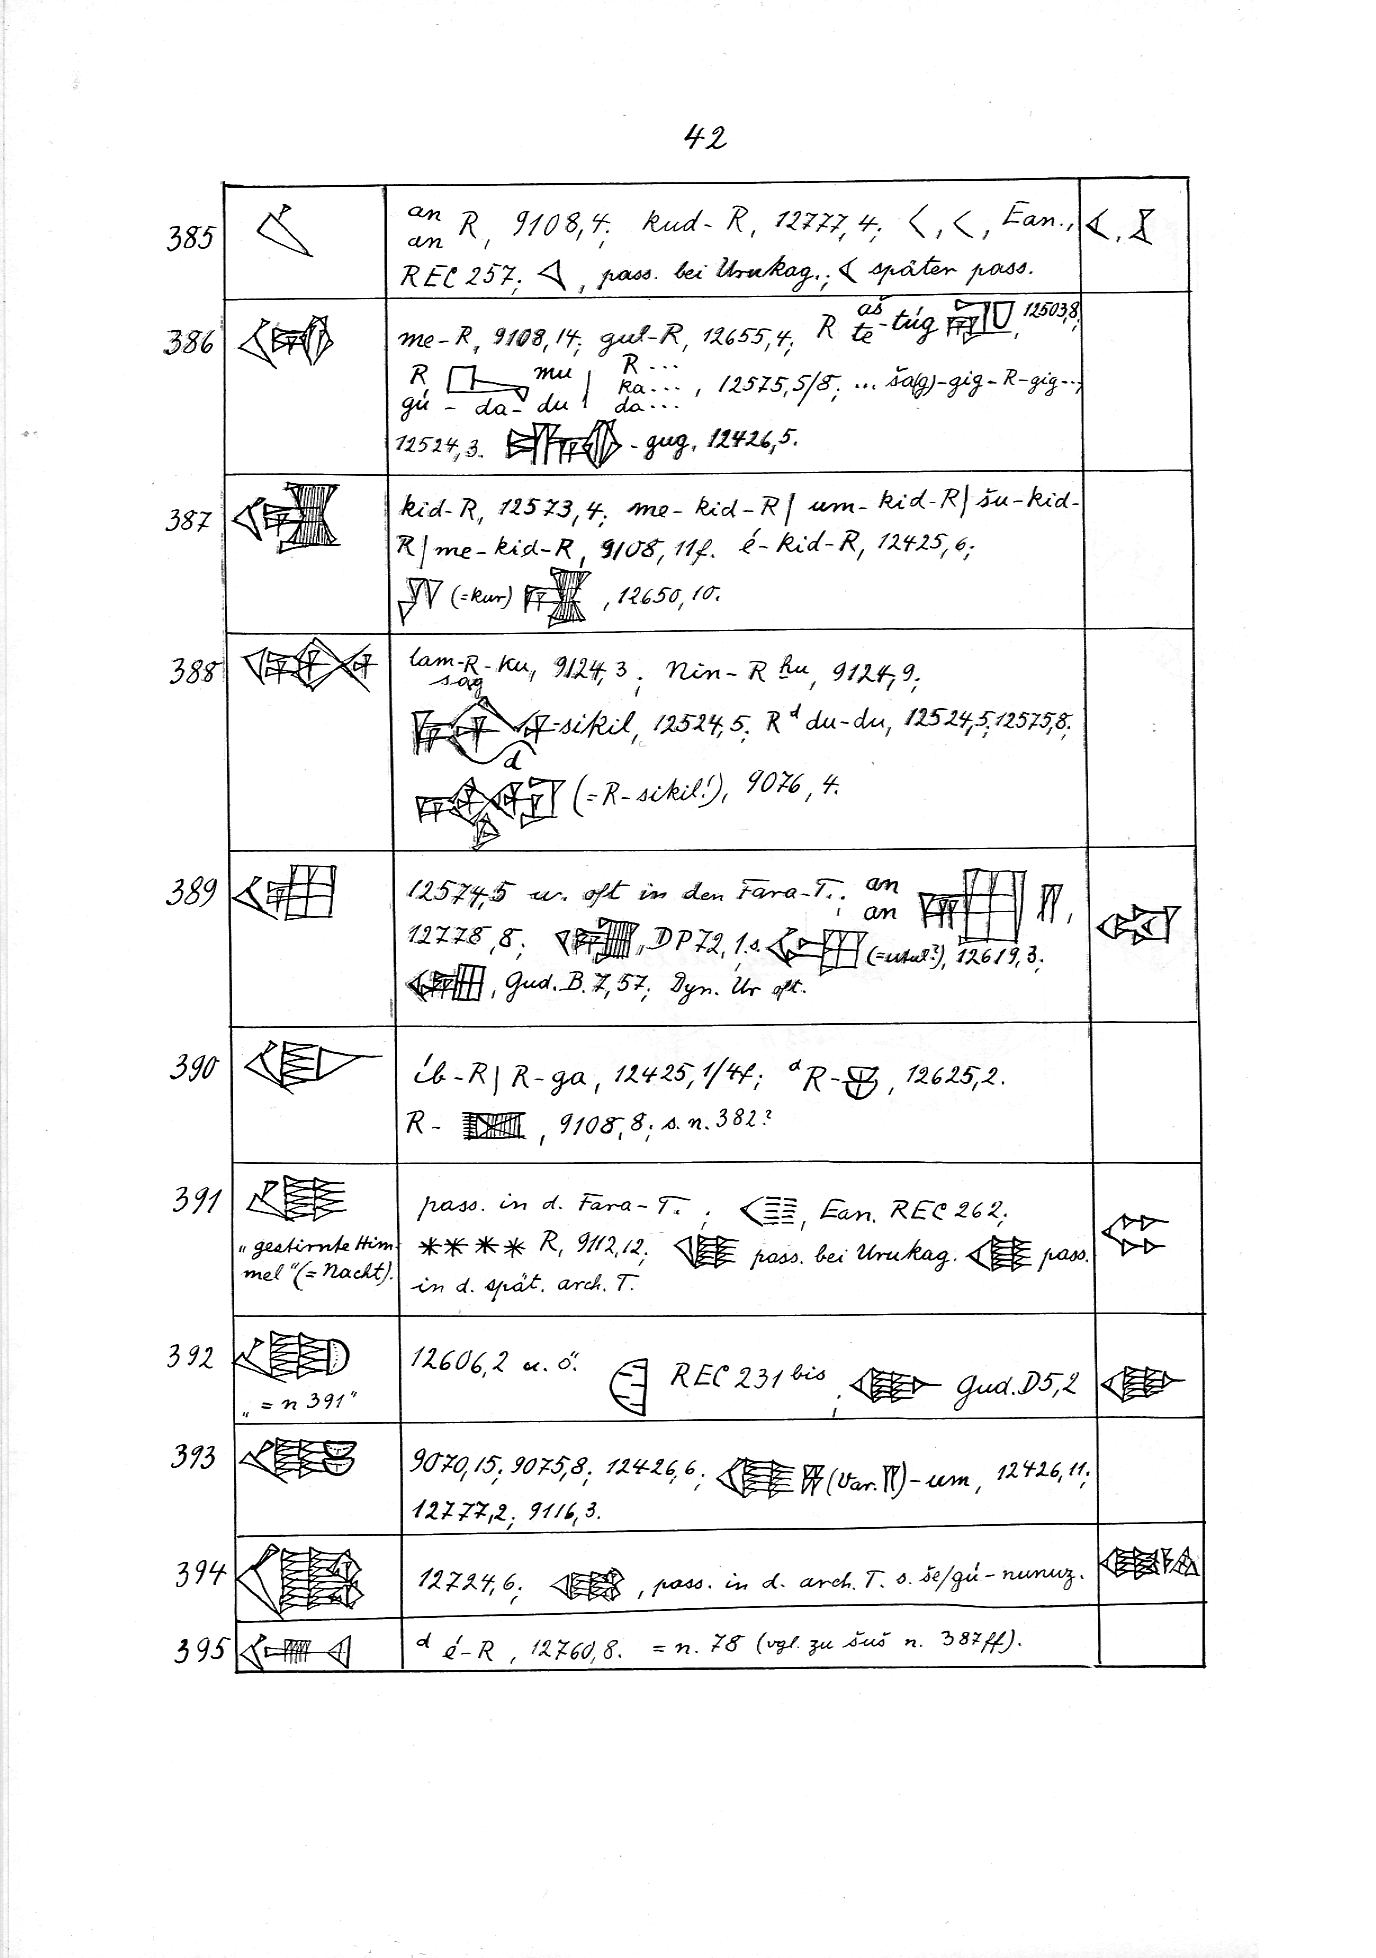 42
385
an
an R, 9108,4; kud-R, 12777,4; Ean.,
REC 257; , pass. bei Urukag.; später pass.
386
me-R, 9108,14; gul-R, 12655,4; R aš
te-túg , 12503,8;
R mu | R...
gú - da-du | ka..., 12575,5/8; ... ša(g)-gig-R-gig...,
da...
12524,3. -gug, 12426,5.
387
kid-R, 12573,4; me-kid-R| um-kid-R| šu-kid-
R| me-kid-R, 9108,11f. é-kid-R, 12425,6;
(=kur) , 12650,10.
388
lam-R-ku, 9124,3; Nin-R ḫu, 9124,9;
sag
-sikil, 12524,5; R ᵈ du-du, 12524,5; 12575,8;
d
(=R-sikil!), 9076,4.
389
12574,5 u. oft in den Fara-T.; an
an
12778,8; , DP 72,1, s. , 12619,3;
, Gud. B. 7,57; Dyn. Ur oft.
390
íb-R| R-ga, 12425,1/4f; ᵈR- , 12625,2.
R- , 9108,8; s. n. 382?
391
„gestirnte Him-
mel" (= Nacht).
pass. in d. Fara-T. ; , Ean. REC 262;
**** R, 9112,12; pass. bei Urukag. pass.
in d. spät. arch. T.
392
„= n 391"
12606,2 u. ö. REC 231 bis ; Gud. D5,2
393
9070,15; 9075,8; 12426,6; (Var. )-um, 12426,11;
12777,2; 9116,3.
394
12724,6; , pass. in d. arch. T. s. še/gú-nunuz.
395
ᵈ é-R, 12760,8. = n. 78 (vgl. zu šuš n. 387ff).